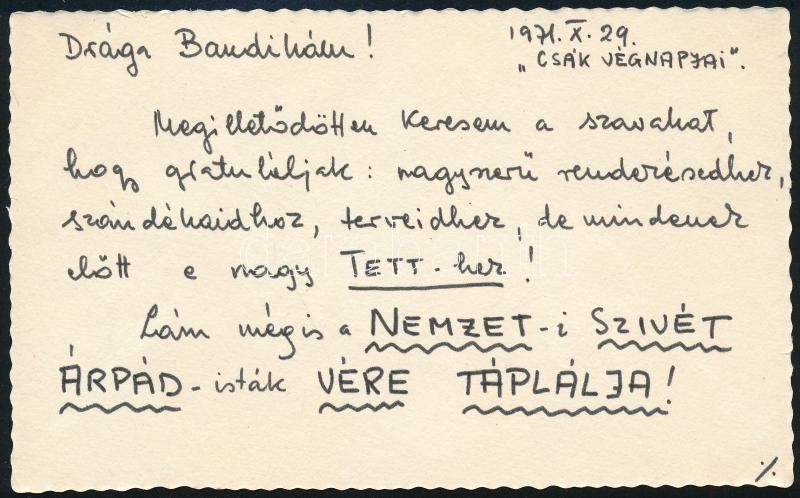 Drága Bandikám!
1971. X. 29.
„CSÁK VÉGNAPJAI".
Megilletődötten keresem a szavakat,
hogy gratuláljak: nagyszerű rendezésedhez,
szándékaidhoz, terveidhez, de mindenek
előtt e nagy TETT-hez!
Lám mégis a NEMZET-i SZIVÉT
ÁRPÁD-isták VÉRE TÁPLÁLJA!
./.
darabanth